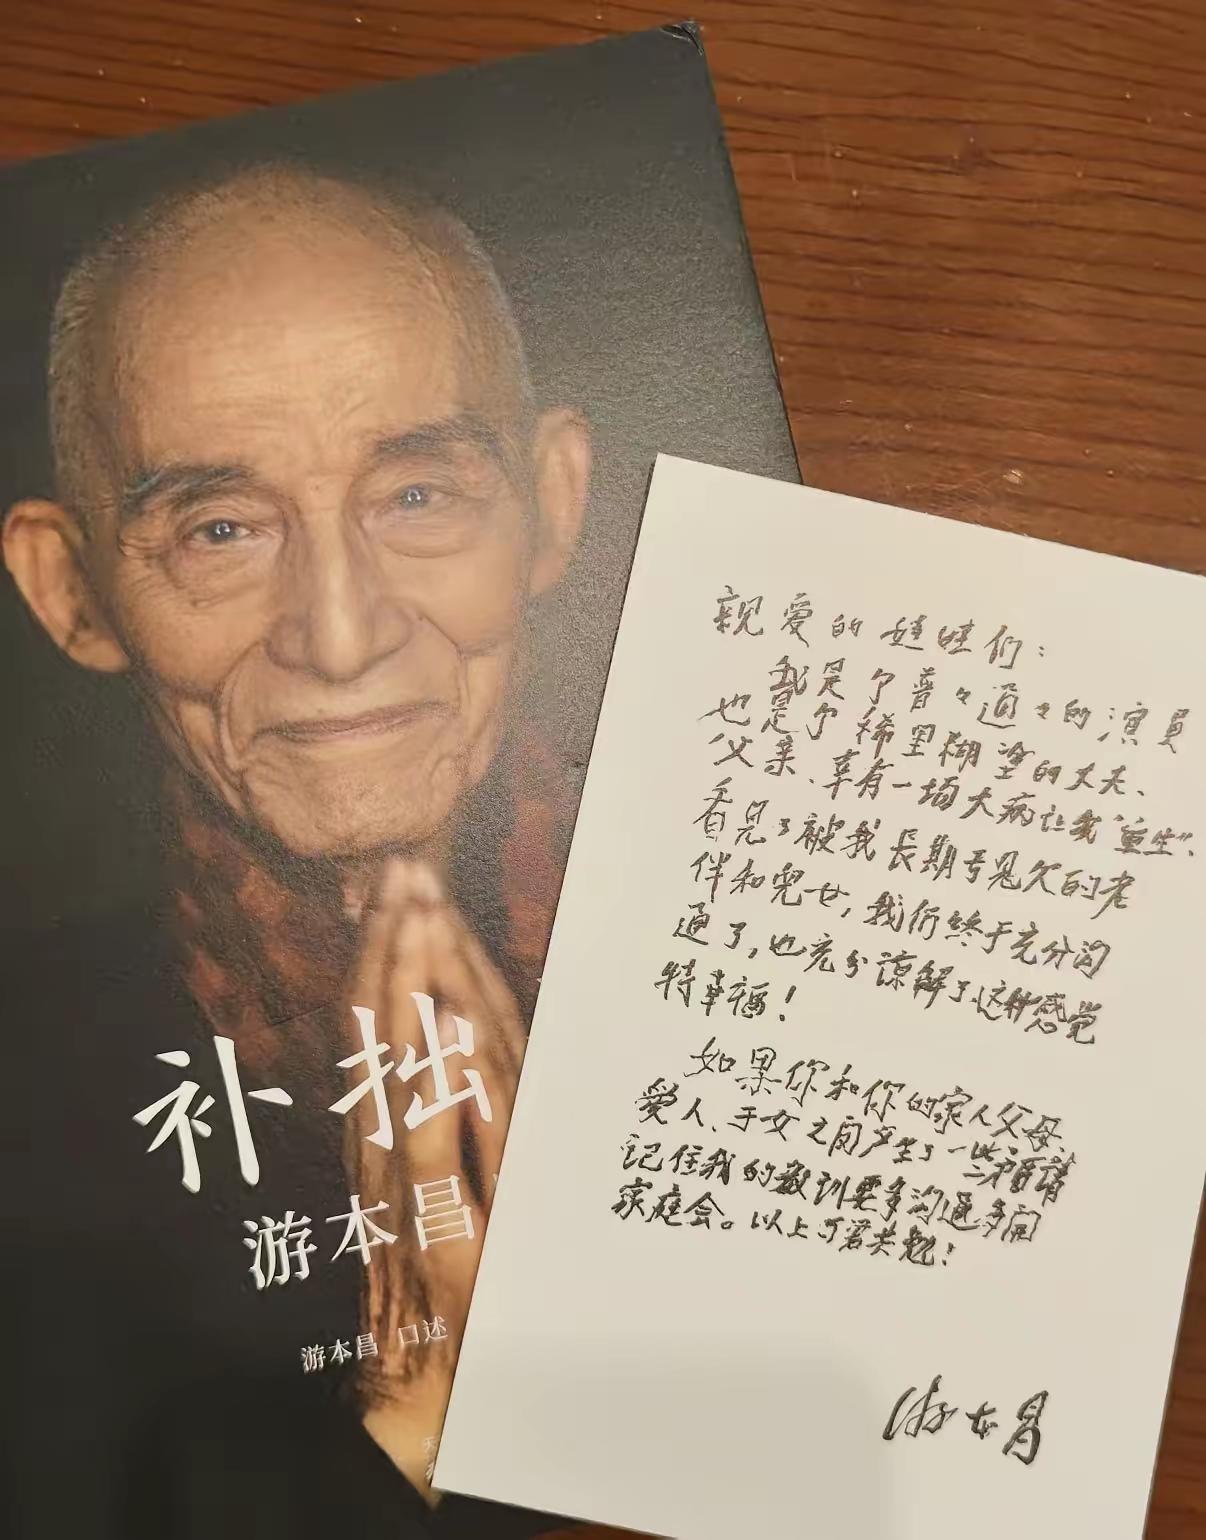 补拙
游本昌
游本昌 口述
亲爱的娃娃们：
我是个普々通々的演员
也是个稀里糊塗的丈夫、
父亲、幸有一场大病让我“重生”、
看见了被我长期亏欠的老
伴和児女，我们终于充分沟
通了，也充分谅解了、这种感觉
特幸福！
如果你和你的家人父母、
爱人、子女之间产生了一些矛盾请
记住我的教训要多沟通多开
家庭会。以上与君共勉！
游本昌